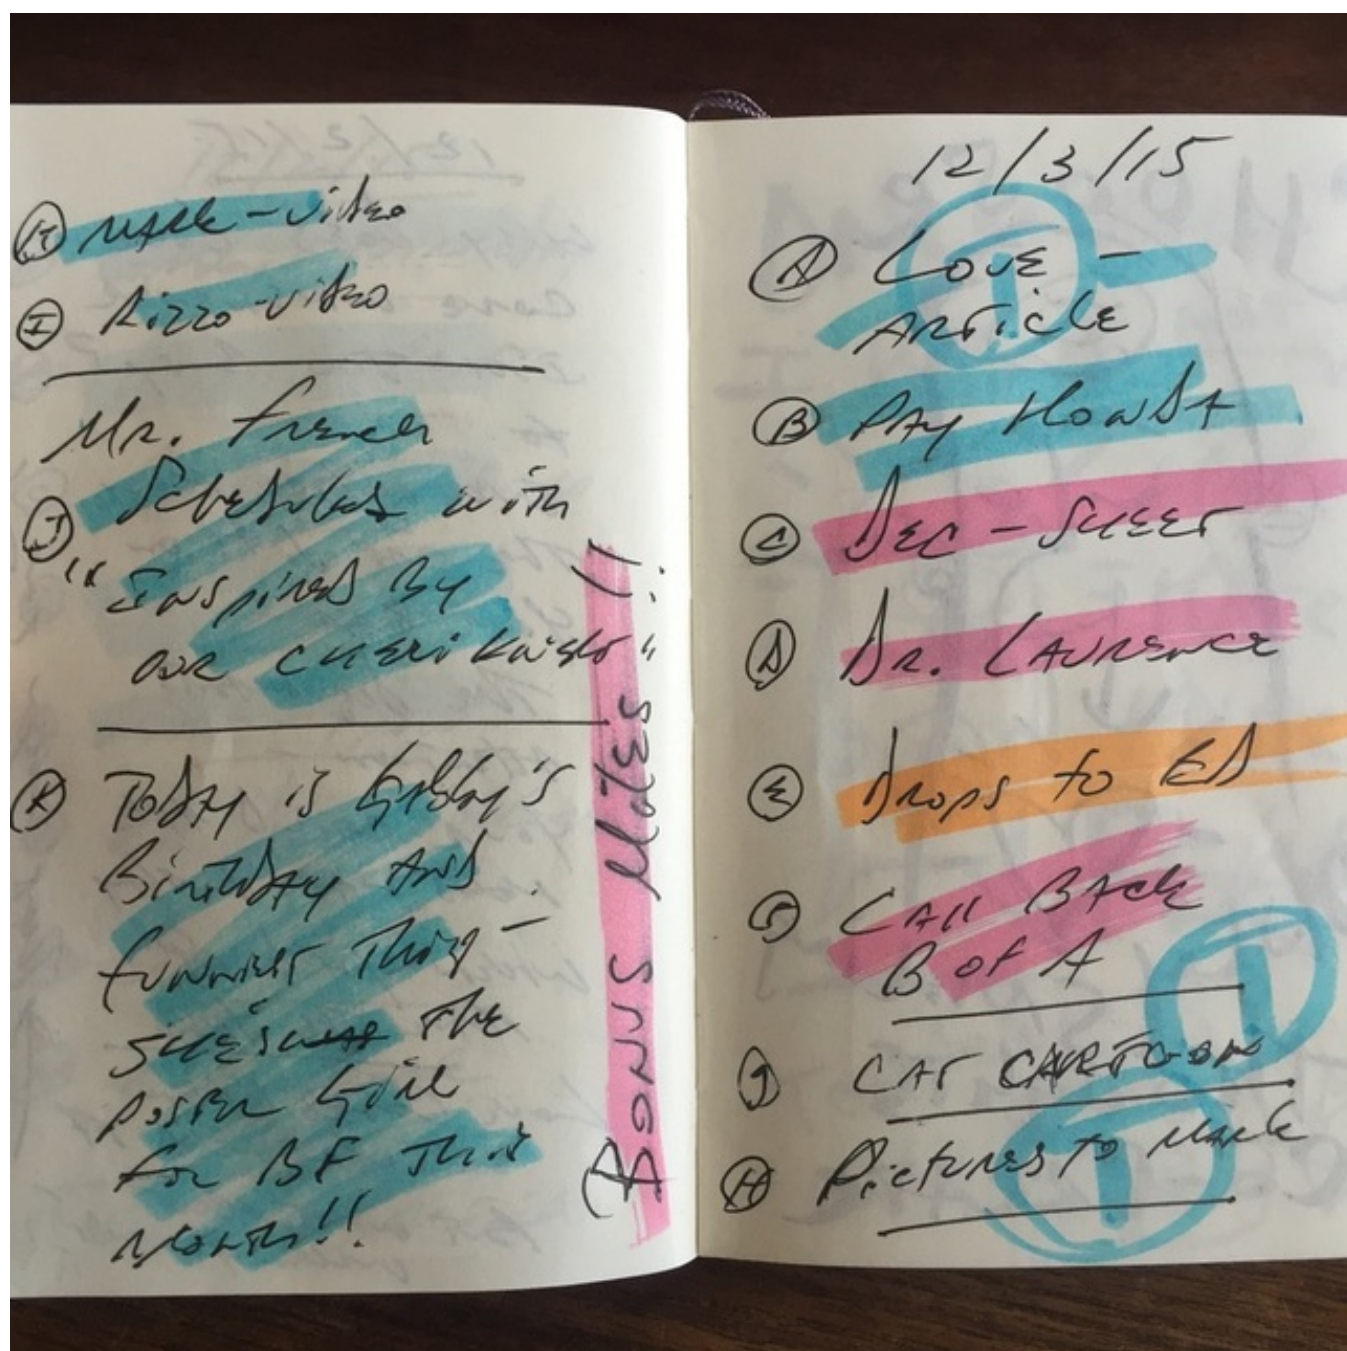 (H) MARK - Video
(I) Rizzo - Video
Mr. French
(J) Schedules with
"Inspired By
our
(K) Today is Gabby's
Birthday and
funniest Thing -
she's the
poster Girl
for BF This
Month!!
Bonus Notes!!
12/3/15
(A) LOVE -
ARTICLE
(B) PAY HONDA
(C) DEC - SHEET
(D) DR. LAURENCE
(E) Drops to ED
(F) CALL BACK
B of A
(G) CAT CARTOON
(H) Pictures to MARK